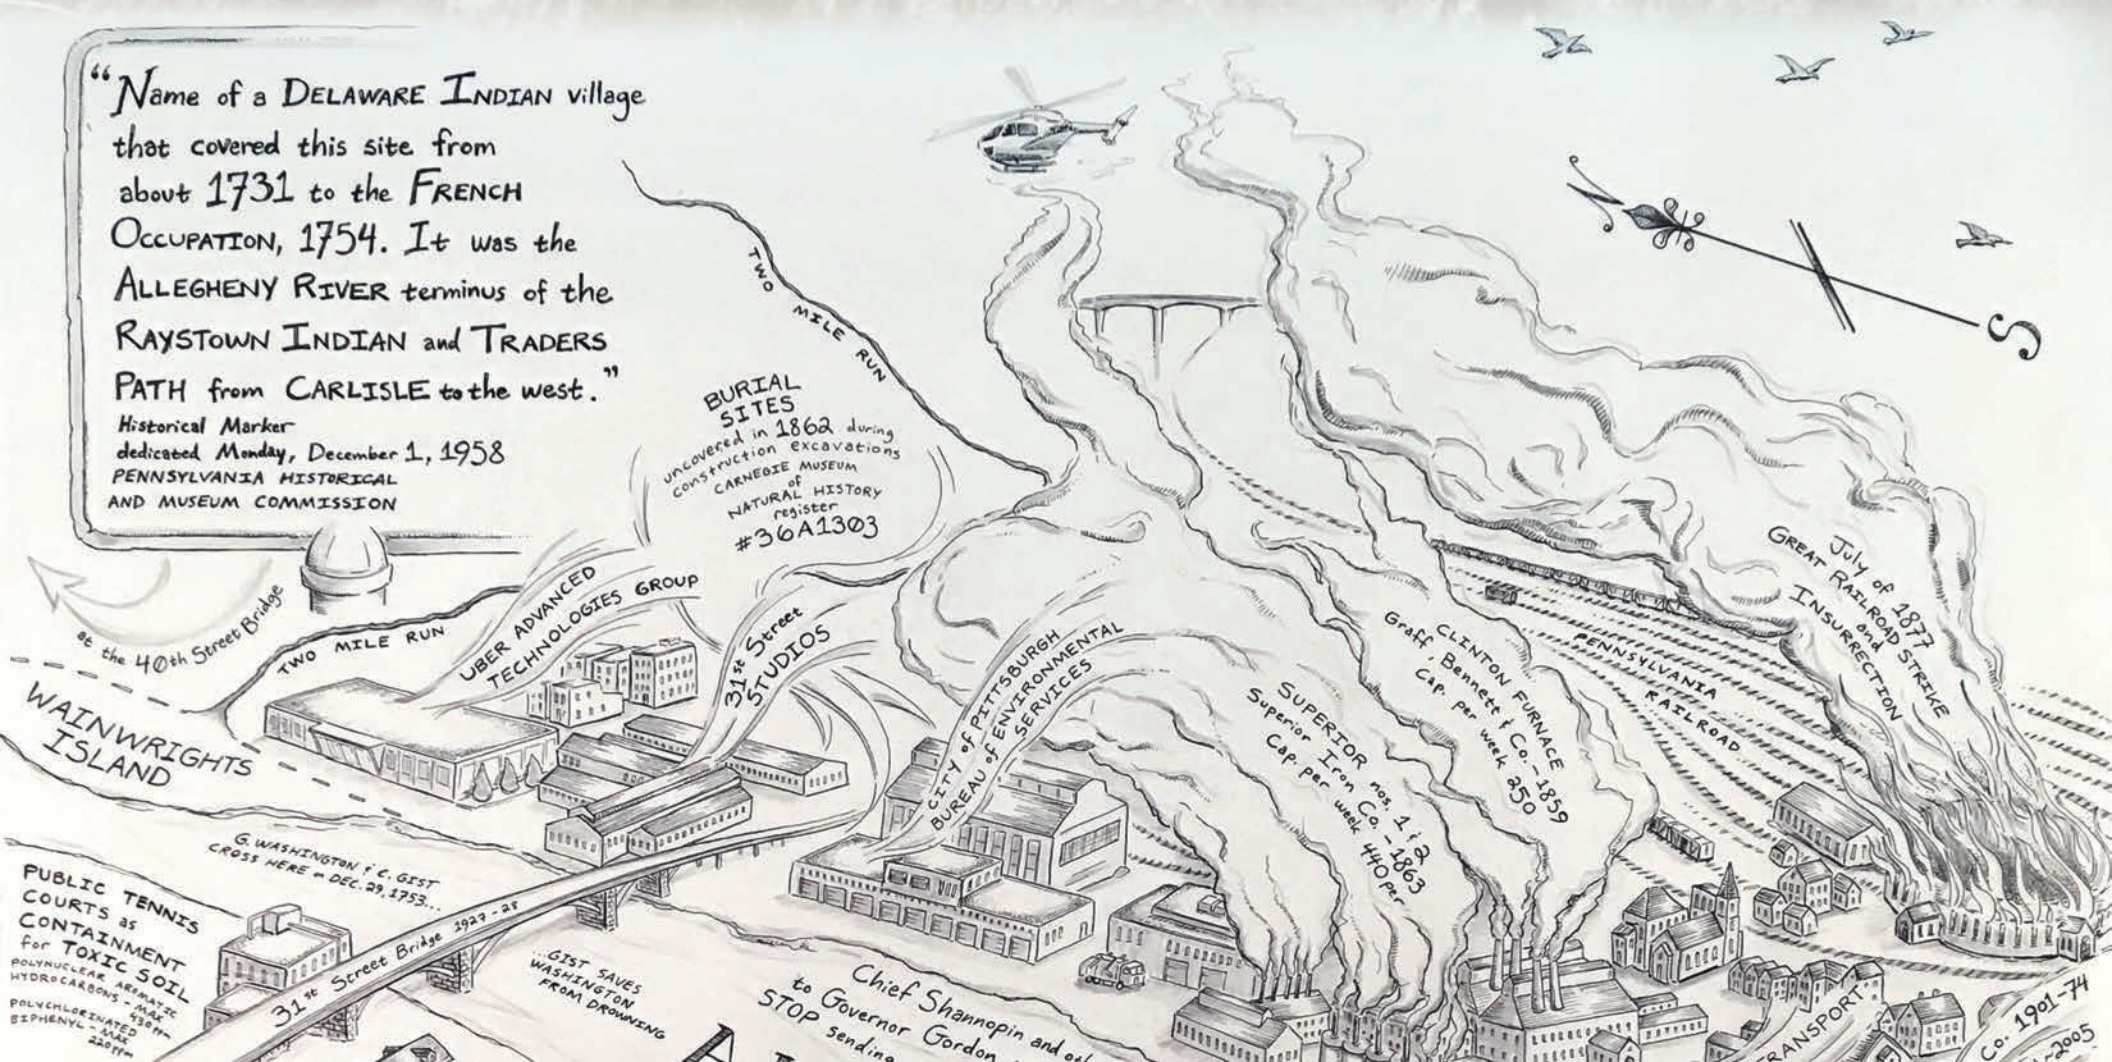 “Name of a DELAWARE INDIAN village
that covered this site from
about 1731 to the FRENCH
OCCUPATION, 1754. It was the
ALLEGHENY RIVER terminus of the
RAYSTOWN INDIAN and TRADERS
PATH from CARLISLE to the west.”
Historical Marker
dedicated Monday, December 1, 1958
PENNSYLVANIA HISTORICAL
AND MUSEUM COMMISSION
at the 40th Street Bridge
TWO MILE RUN
BURIAL
SITES
uncovered in 1862 during
construction excavations
CARNEGIE MUSEUM
of
NATURAL HISTORY
register
#36A1303
N
S
TWO MILE RUN
UBER ADVANCED
TECHNOLOGIES GROUP
31st Street
STUDIOS
CITY of PITTSBURGH
BUREAU of ENVIRONMENTAL
SERVICES
SUPERIOR nos. 1 & 2
Superior Iron Co. - 1863
Cap. per week 440 per
CLINTON FURNACE
Graff, Bennett & Co. - 1859
Cap. per week 250
PENNSYLVANIA
RAILROAD
July of 1877
GREAT RAILROAD STRIKE
and
INSURRECTION
WAINWRIGHTS
ISLAND
G. WASHINGTON & C. GIST
CROSS HERE - DEC. 29, 1753...
PUBLIC TENNIS
COURTS as
CONTAINMENT
for TOXIC SOIL
POLYNUCLEAR AROMATIC
HYDROCARBONS - MAX
430 ppm
POLYCHLORINATED
BIPHENYL - MAX
220 ppm
31st Street Bridge 1927-28
...GIST SAVES
WASHINGTON
FROM DROWNING
Chief Shannopin and
to Governor Gordon
STOP sending
TRANSPORT
Co. 1901-74
2005